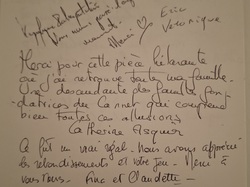 Merci ♡
Eric
Veronique
Merci pour cette pièce hilarante
où j'ai retrouvé toute ma famille.
Une descendante des familles fon-
datrices du Cannet qui comprend
bien toutes ces allusions
Catherine
Ce fût un vrai régal. Nous avons apprécié
les rebondissements et votre jeu. Merci à
vous tous. Anne et Claudette